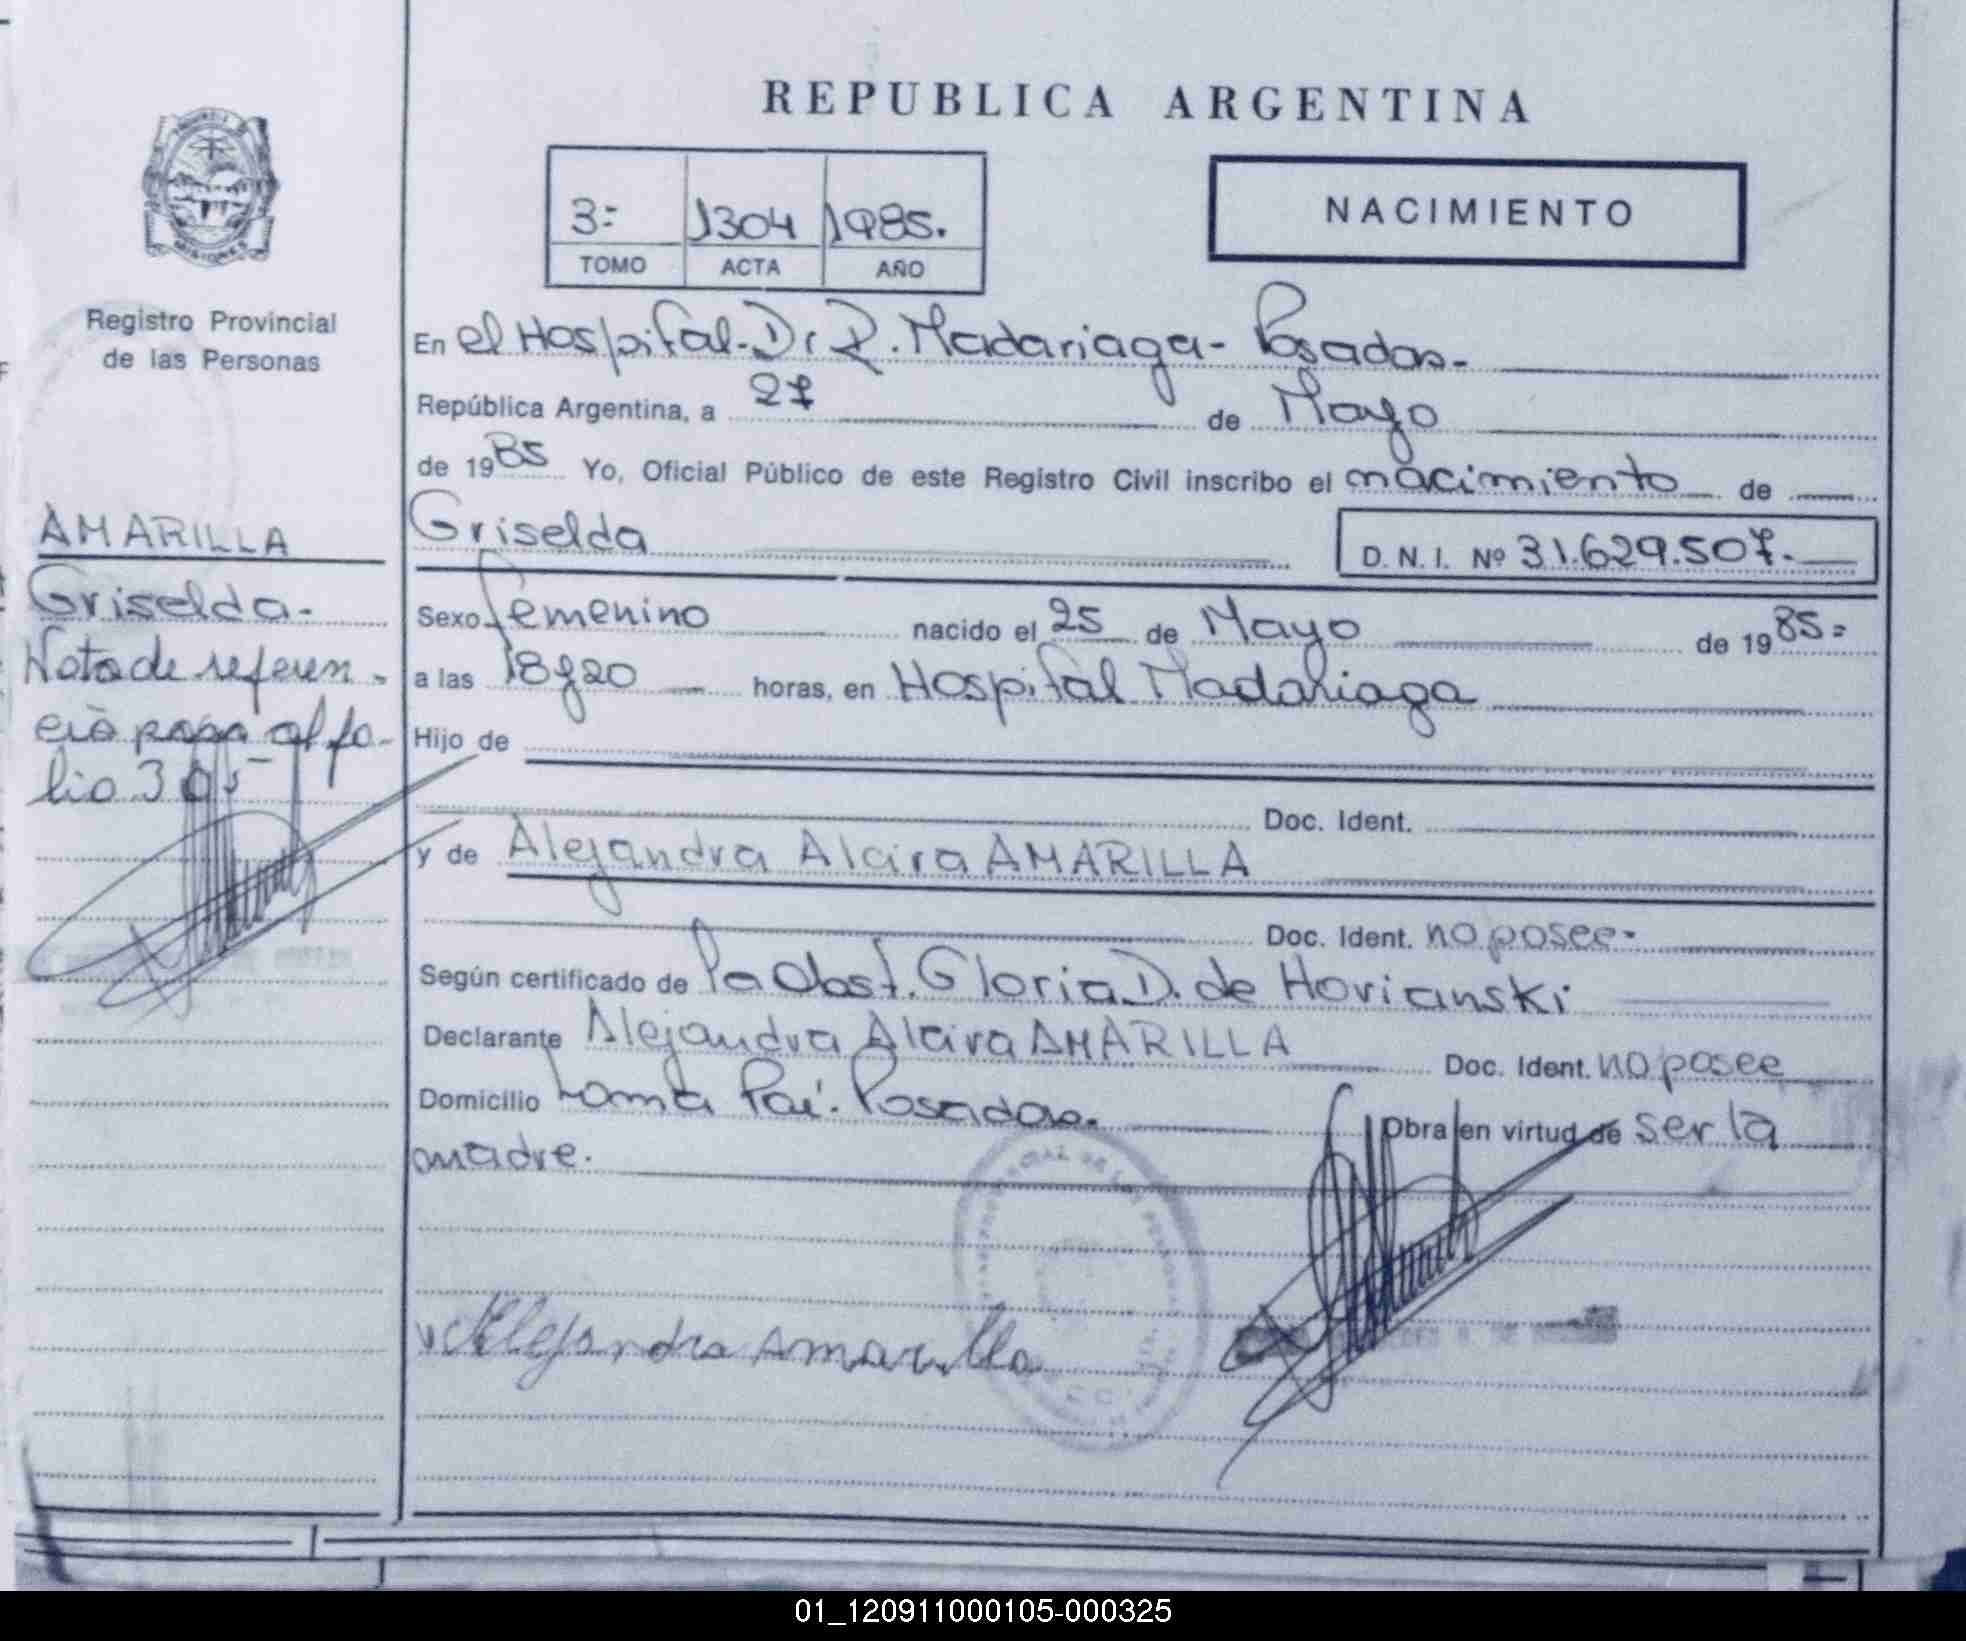 REPUBLICA ARGENTINA
3= 1304 1985.
TOMO ACTA AÑO
NACIMIENTO
MISIONES
Registro Provincial
de las Personas
AMARILLA
Griselda.
Nota de referen-
cia pasa al fo-
lio 305
En el Hospital. Dr R. Madariaga- Posadas-
República Argentina, a 27 de Mayo
de 1985 Yo, Oficial Público de este Registro Civil inscribo el nacimiento de
Griselda D. N. I. Nº 31.629.507.
Sexo femenino nacido el 25 de Mayo de 1985=
a las 18y20 horas, en Hospital Madariaga
Hijo de
Doc. Ident.
y de Alejandra Alcira AMARILLA
Doc. Ident. no posee-
Según certificado de la Obst. Gloria D. de Horianski
Declarante Alejandra Alcira AMARILLA Doc. Ident. no posee
Domicilio Loma Poi. Posadas. Obra en virtud de ser la
madre.
Alejandra Amarilla
01_120911000105-000325